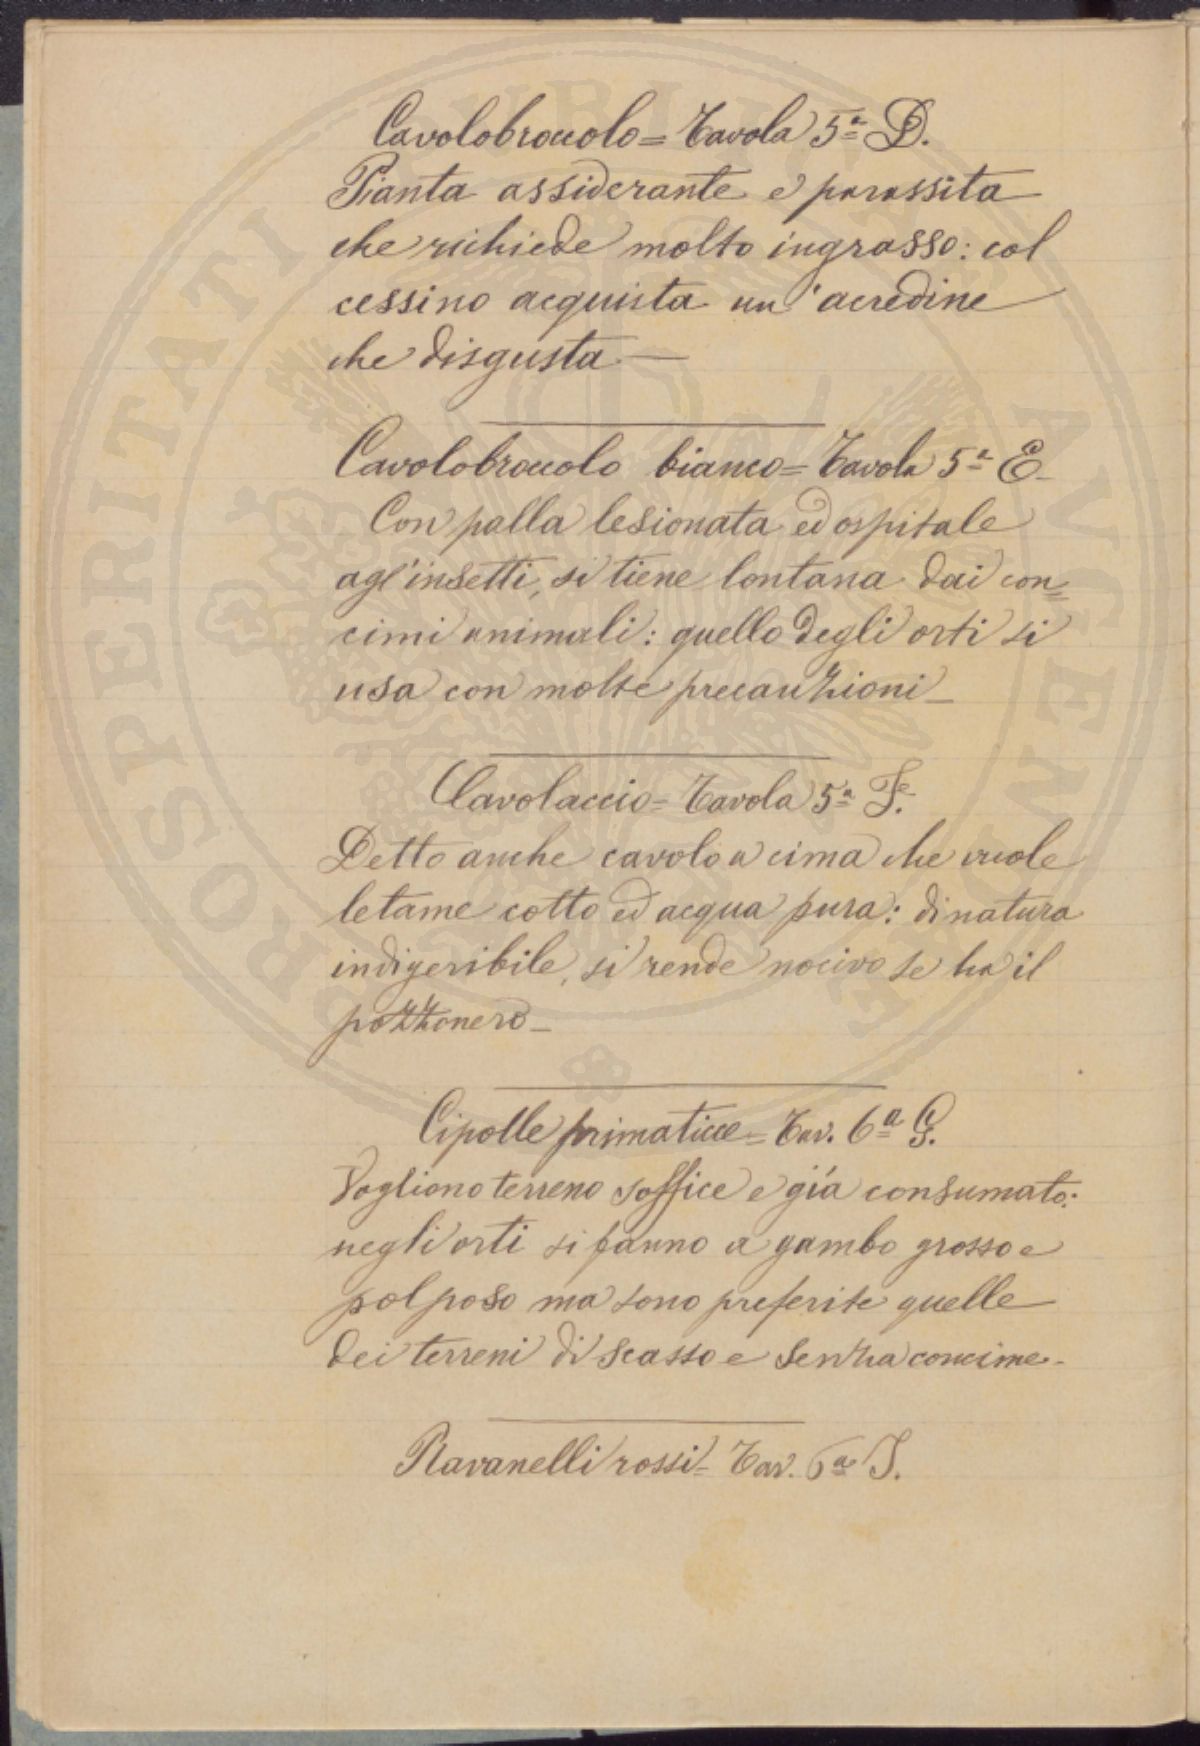 Cavolobroccolo = Tavola 5ª D.
Pianta assiderante e parassita
che richiede molto ingrasso: col
cessino acquista un'acredine
che disgusta —
Cavolobroccolo bianco = Tavola 5ª E -
Con palla lesionata ed ospitale
agl'insetti, si tiene lontana dai con=
cimi animali: quello degli orti si
usa con molte precauzioni -
Cavolaccio = Tavola 5ª F.
Detto anche cavolo a cima che vuole
letame cotto ed acqua pura: di natura
indigeribile, si rende nocivo se ha il
pozzonero -
Cipolle primaticce = Tav. 6ª G.
Vogliono terreno soffice e giá consumato:
negli orti si fanno a gambo grosso e
polposo ma sono preferite quelle
dei terreni di scasso e senza concime -
Ravanelli rossi = Tav. 6ª I.
PROSPERITATI PUBLICAE AUGENDAE